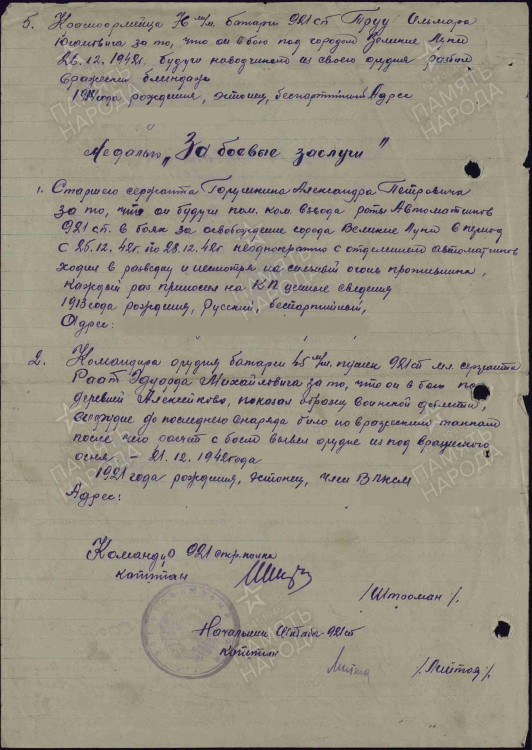 5. Красноармейца 76 м/м. батареи 921 сп Труу Ильмара
Юлиусовича за то, что он в бою под городом Великие Луки
26.12.1942г. будучи наводчиком из своего орудия разбил
вражеский блиндаж
года рождения, эстонец, беспартийный Адрес
Медалью „За боевые заслуги"
1. Старшего сержанта Горушкина Александра Петровича
за то, что он будучи пом. ком. взвода роты Автоматчиков
921 сп. в боях за освобождение города Великие Луки в период
с 25.12.42г. по 28.12.42г. неоднократно с отделением автоматчиков
ходил в разведку и несмотря на сильный огонь противника,
каждый раз приносил на КП ценные сведения
1913 года рождения, Русский, беспартийный,
Адрес:
2. Командира орудия батареи 45 м/м. пушек 921 сп мл. сержанта
Раат Эдуарда Михайловича за то, что он в бою под
деревней Алексейково, показал образец воинской доблести,
орудие до последнего снаряда било по вражеским танкам
после чего расчет с боем вывел орудие из под вражеского
огня – 21.12.1942 года
1921 года рождения, эстонец, член ВЛКСМ
Адрес:
Командир 921 стр. полка
капитан
/Штросман/.
Начальник Штаба 921 сп
капитан
ПАМЯТЬ НАРОДА